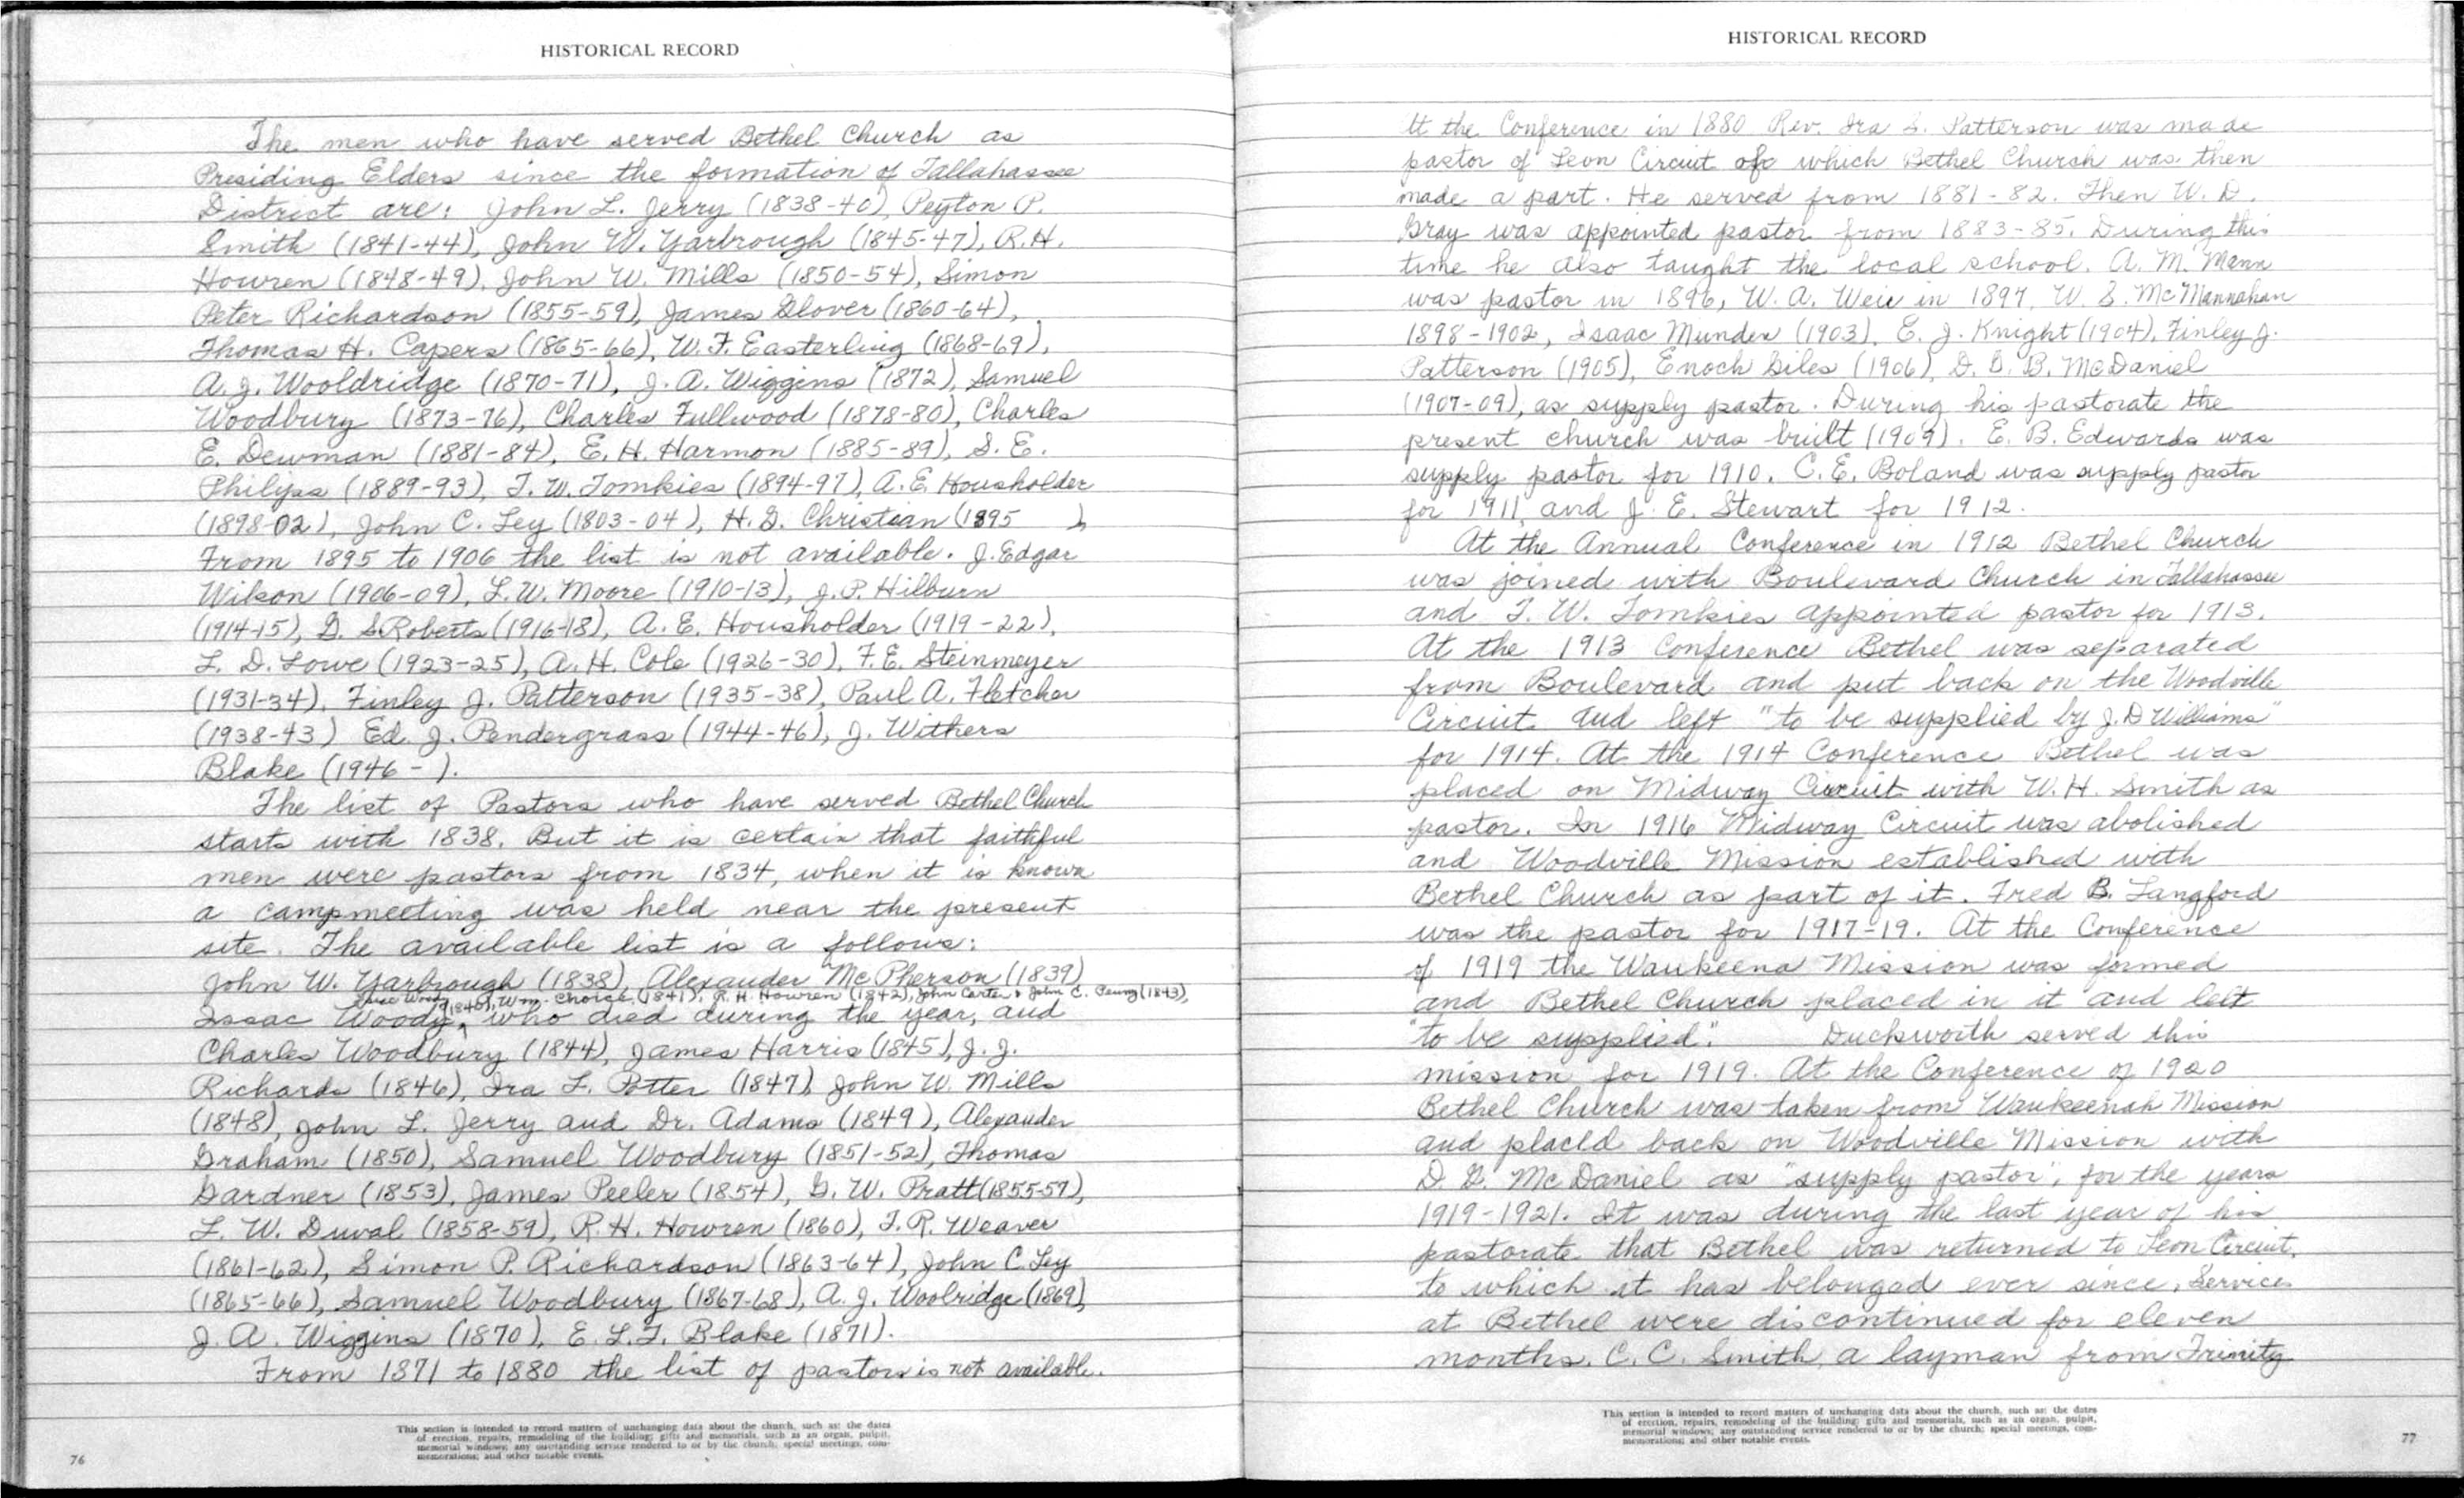 HISTORICAL RECORD
The men who have served Bethel Church as
Presiding Elders since the formation of Tallahassee
District are: John L. Jerry (1838-40), Peyton P.
Smith (1841-44), John W. Yarbrough (1845-47), R.H.
Howren (1848-49), John W. Mills (1850-54), Simon
Peter Richardson (1855-59), James Glover (1860-64),
Thomas H. Capers (1865-66), W.F. Easterling (1868-69),
A.J. Wooldridge (1870-71), J.A. Wiggins (1872), Samuel
Woodbury (1873-76), Charles Fullwood (1878-80), Charles
E. Dewman (1881-84), E.H. Harmon (1885-89), S.E.
Philips (1889-93), T.W. Tomkies (1894-97), A.E. Housholder
(1898-02), John C. Ley (1803-04), H.G. Christian (1895 ),
From 1895 to 1906 the list is not available. J. Edgar
Wilson (1906-09), L.W. Moore (1910-13), J.P. Hilburn
(1914-15), G. S. Roberts (1916-18), A.E. Housholder (1919-22),
L.D. Lowe (1923-25), A.H. Cole (1926-30), F.E. Steinmeyer
(1931-34), Finley J. Patterson (1935-38), Paul A. Fletcher
(1938-43) Ed. J. Pendergrass (1944-46), J. Withers
Blake (1946- ).
The list of Pastors who have served Bethel Church
starts with 1838. But it is certain that faithful
men were pastors from 1834, when it is known
a campmeeting was held near the present
site. The available list is a follows:
John W. Yarbrough (1838), Alexander McPherson (1839)
(1840), Wm. Choice (1841), R.H. Howren (1842), John Carter & John C. (1843),
Isaac Woody, who died during the year, and
Charles Woodbury (1844), James Harris (1845), J.J.
Richards (1846), Ira L. Potter (1847), John W. Mills
(1848), John L. Jerry and Dr. Adams (1849), Alexander
Graham (1850), Samuel Woodbury (1851-52), Thomas
Gardner (1853), James Peeler (1854), G.W. Pratt (1855-57),
L.W. Duval (1858-59), R.H. Howren (1860), T.R. Weaver
(1861-62), Simon P. Richardson (1863-64), John C. Ley
(1865-66), Samuel Woodbury (1867-68), A.J. Woolridge (1869),
J.A. Wiggins (1870), E.L.T. Blake (1871).
From 1871 to 1880 the list of pastors is not available.
This section is intended to record matters of unchanging data about the church, such as: the dates
of erection, repairs, remodeling of the building; gifts and memorials, such as an organ, pulpit,
memorial windows; any outstanding service rendered to or by the church; special meetings, com-
memorations; and other notable events.
76
HISTORICAL RECORD
At the Conference in 1880 Rev. Ira S. Patterson was made
pastor of Leon Circuit of which Bethel Church was then
made a part. He served from 1881-82. Then W.D.
Gray was appointed pastor from 1883-85. During this
time he also taught the local school. A.M. Mann
was pastor in 1896, W.A. Weir in 1897, W.S. McMannahan
1898-1902, Isaac Munden (1903), E.J. Knight (1904), Finley J.
Patterson (1905), Enoch Giles (1906), D.G.B. McDaniel
(1907-09), as supply pastor. During his pastorate the
present church was built (1909). E.B. Edwards was
supply pastor for 1910. C.E. Boland was supply pastor
for 1911, and J.E. Stewart for 1912.
At the Annual Conference in 1912 Bethel Church
was joined with Boulevard Church in Tallahassee
and T.W. Tomkies appointed pastor for 1913.
At the 1913 Conference Bethel was separated
from Boulevard and put back on the Woodville
Circuit and left "to be supplied by J.D Williams"
for 1914. At the 1914 Conference Bethel was
placed on Midway Circuit with W.H. Smith as
pastor. In 1916 Midway Circuit was abolished
and Woodville Mission established with
Bethel Church as part of it. Fred B. Langford
was the pastor for 1917-19. At the Conference
of 1919 the Waukeena Mission was formed
and Bethel Church placed in it and left
"to be supplied". Duckworth served this
mission for 1919. At the Conference of 1920
Bethel Church was taken from Waukeenah Mission
and placed back on Woodville Mission with
D.G. McDaniel as "supply pastor", for the years
1919-1921. It was during the last year of his
pastorate that Bethel was returned to Leon Circuit,
to which it has belonged ever since. Services
at Bethel were discontinued for eleven
months. C.C. Smith, a layman from Trinity
This section is intended to record matters of unchanging data about the church, such as: the dates
of erection, repairs, remodeling of the building; gifts and memorials, such as an organ, pulpit,
memorial windows; any outstanding service rendered to or by the church; special meetings, com-
memorations; and other notable events.
77